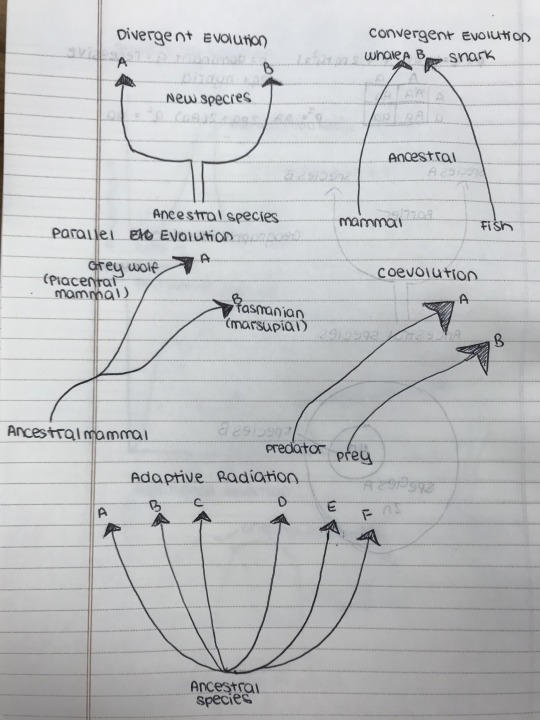 Divergent Evolution
A
B
New species
Ancestral species
Convergent Evolution
whale A B shark
Ancestral
mammal
Fish
Parallel Evolution
Grey wolf
(Placental
mammal)
A
B
Tasmanian
(marsupial)
Ancestral mammal
coevolution
A
B
predator
prey
Adaptive Radiation
A B C D E F
Ancestral
species